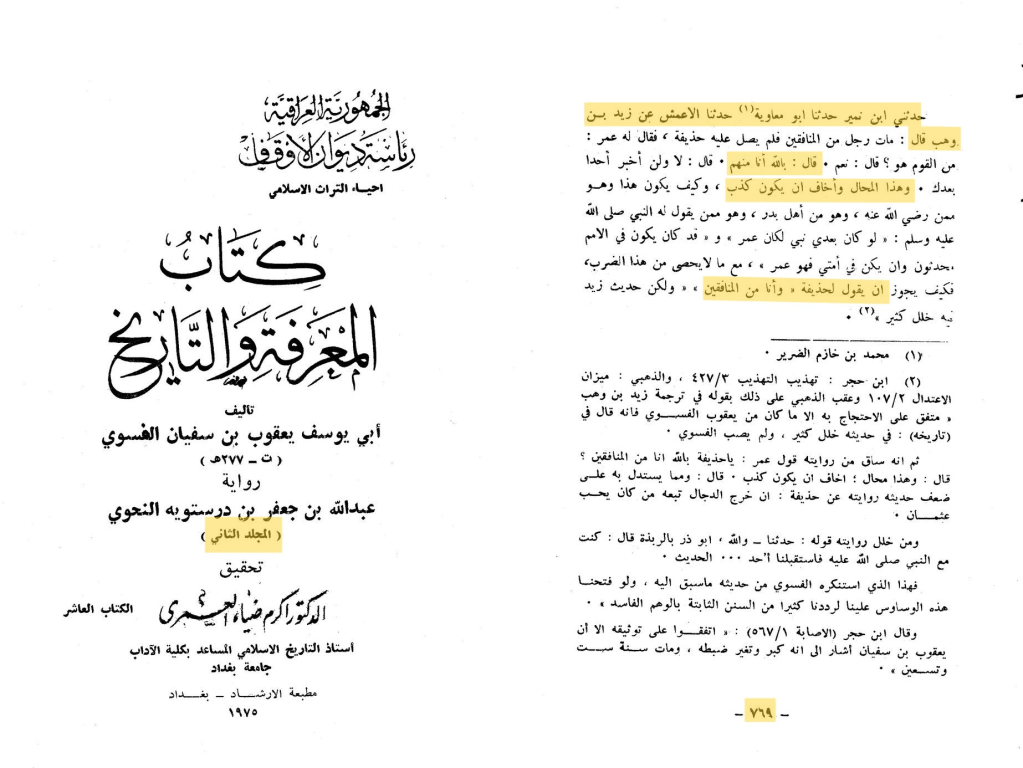 الجمهورية العراقية
رئاسة ديوان الأوقاف
احياء التراث الاسلامي
كتاب
المعرفة والتاريخ
تاليف
أبي يوسف يعقوب بن سفيان الفسوي
( ت ــ ٢٧٧هـ )
رواية
عبدالله بن جعفر بن درستويه النحوي
( المجلد الثاني )
تحقيق
الدكتور اكرم ضياء العمري
الكتاب العاشر
أستاذ التاريخ الاسلامي المساعد بكلية الآداب
جامعة بغداد
مطبعة الارشاد – بغداد
١٩٧٥
حدثني ابن نمير حدثنا ابو معاوية(١) حدثنا الاعمش عن زيد بن
وهب قال : مات رجل من المنافقين فلم يصل عليه حذيفة ، فقال له عمر :
من القوم هو ؟ قال : نعم ٠ قال : بالله أنا منهم ٠ قال : لا ولن أخبر أحدا
بعدك ٠ وهذا المحال وأخاف ان يكون كذب ، وكيف يكون هذا وهو
ممن رضي الله عنه ، وهو من أهل بدر ، وهو ممن يقول له النبي صلى الله
عليه وسلم : « لو كان بعدي نبي لكان عمر » و « قد كان يكون في الامم
محدثون وان يكن في أمتي فهو عمر » ، مع ما لايحصى من هذا الضرب،
فكيف يجوز ان يقول لحذيفة « وأنا من المنافقين » « ولكن حديث زيد
فيه خلل كثير »(٢) ٠
(١) محمد بن خازم الضرير ٠
(٢) ابن حجر : تهذيب التهذيب ٤٢٧/٣ ، والذهبي : ميزان
الاعتدال ١٠٧/٢ وعقب الذهبي على ذلك بقوله في ترجمة زيد بن وهب
« متفق على الاحتجاج به الا ما كان من يعقوب الفسوي فانه قال في
(تاريخه) : في حديثه خلل كثير ، ولم يصب الفسوي ٠
ثم انه ساق من روايته قول عمر : ياحذيفة بالله انا من المنافقين ؟
قال : وهذا محال ؛ اخاف ان يكون كذب ٠ قال : ومما يستدل به على
ضعف حديثه روايته عن حذيفة : ان خرج الدجال تبعه من كان يحب
عثمان ٠
ومن خلل روايته قوله : حدثنا – والله ، ابو ذر بالربذة قال : كنت
مع النبي صلى الله عليه فاستقبلنا أحد ٠٠٠ الحديث ٠
فهذا الذي استنكره الفسوي من حديثه ماسبق اليه ، ولو فتحنا
هذه الوساوس علينا لرددنا كثيرا من السنن الثابتة بالوهم الفاسد » ٠
وقال ابن حجر (الاصابة ٥٦٧/١) : « اتفقوا على توثيقه الا أن
يعقوب بن سفيان أشار الى انه كبر وتغير ضبطه ، ومات سنة ست
وتسعين » ٠
– ٧٦٩ –